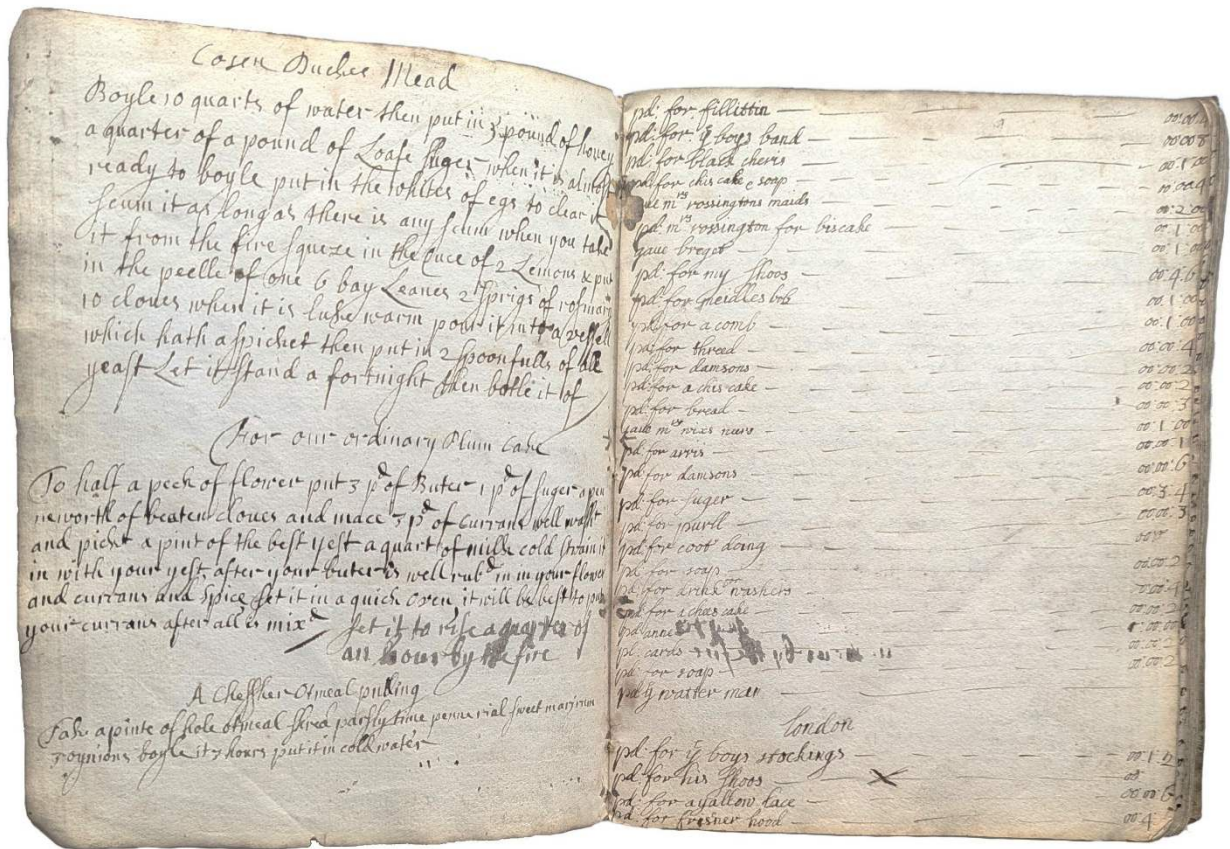 Cosen Mead
Boyle 10 quarts of water then put in 3 pound of honey
a quarter of a pound of Loafe suger when it is almost
ready to boyle put in the whites of egs to clear it
scum it as long as there is any scum when you take
it from the fire squeze in the Juce of 2 Lemons & put
in the peelle of one 6 bay Leaves 2 sprigs of rosmary
10 cloves when it is luke warm pour it into a vessell
which hath a spicket then put in 2 spoonfulls of ale
yeast Let it stand a fortnight then botle it of
For our ordinary Plum Cake
To half a peck of flower put 3 pd of Buter 1 pd of suger a pen
neworth of beaten cloves and mace 3 pd of currans well washt
and pickt a pint of the best yest a quart of milk cold strain it
in with your yest, after your buter is well rubd in in your flower
and currans and spice set it in a quick oven it will be best to put
your currans after all is mixd set it to rise a quarter of
an hour by the fire
A otmeal puding
Take a pinte of hole otmeal shred parsly time pennerial sweet marjrum
3 oynions boyle it 3 hours put it in cold water
pd: for fillittin
pd: for ye boys band 00:00:8
pd: for black cheris 00:1:0
pd: for chis cake & soap
gave mrs rossingtons maids 00:2:0
pd: mrs rossington for biscake 00:1:0
gave breget 00:1:0
pd: for my shoos 00:4:6
pd: for neidles bob 00:1:00
pd: for a comb 00:1:00
pd: for threed 00:00:4
pd: for damsons 00:00:2
pd: for a chis cake 00:00:2
pd: for bread 00:00:3
gave mrs nurs 00:1:00
pd: for arris 00:00:1
pd: for damsons 00:00:6
pd: for suger 00:3:4
pd: for purll 00:00:3
pd: for coot doing
pd: for soap 00:00:2
pd: for drink for washers 00:00:4
pd: for 1 chees cake 00:00:2
pd anne
pd: cards 00:00:2
pd: for soap 00:00:2
pd ye watter man
London
pd: for ye boys stockings
pd: for his shoos
pd: for a yallow lace 00:00:6
pd: for hood 00:4